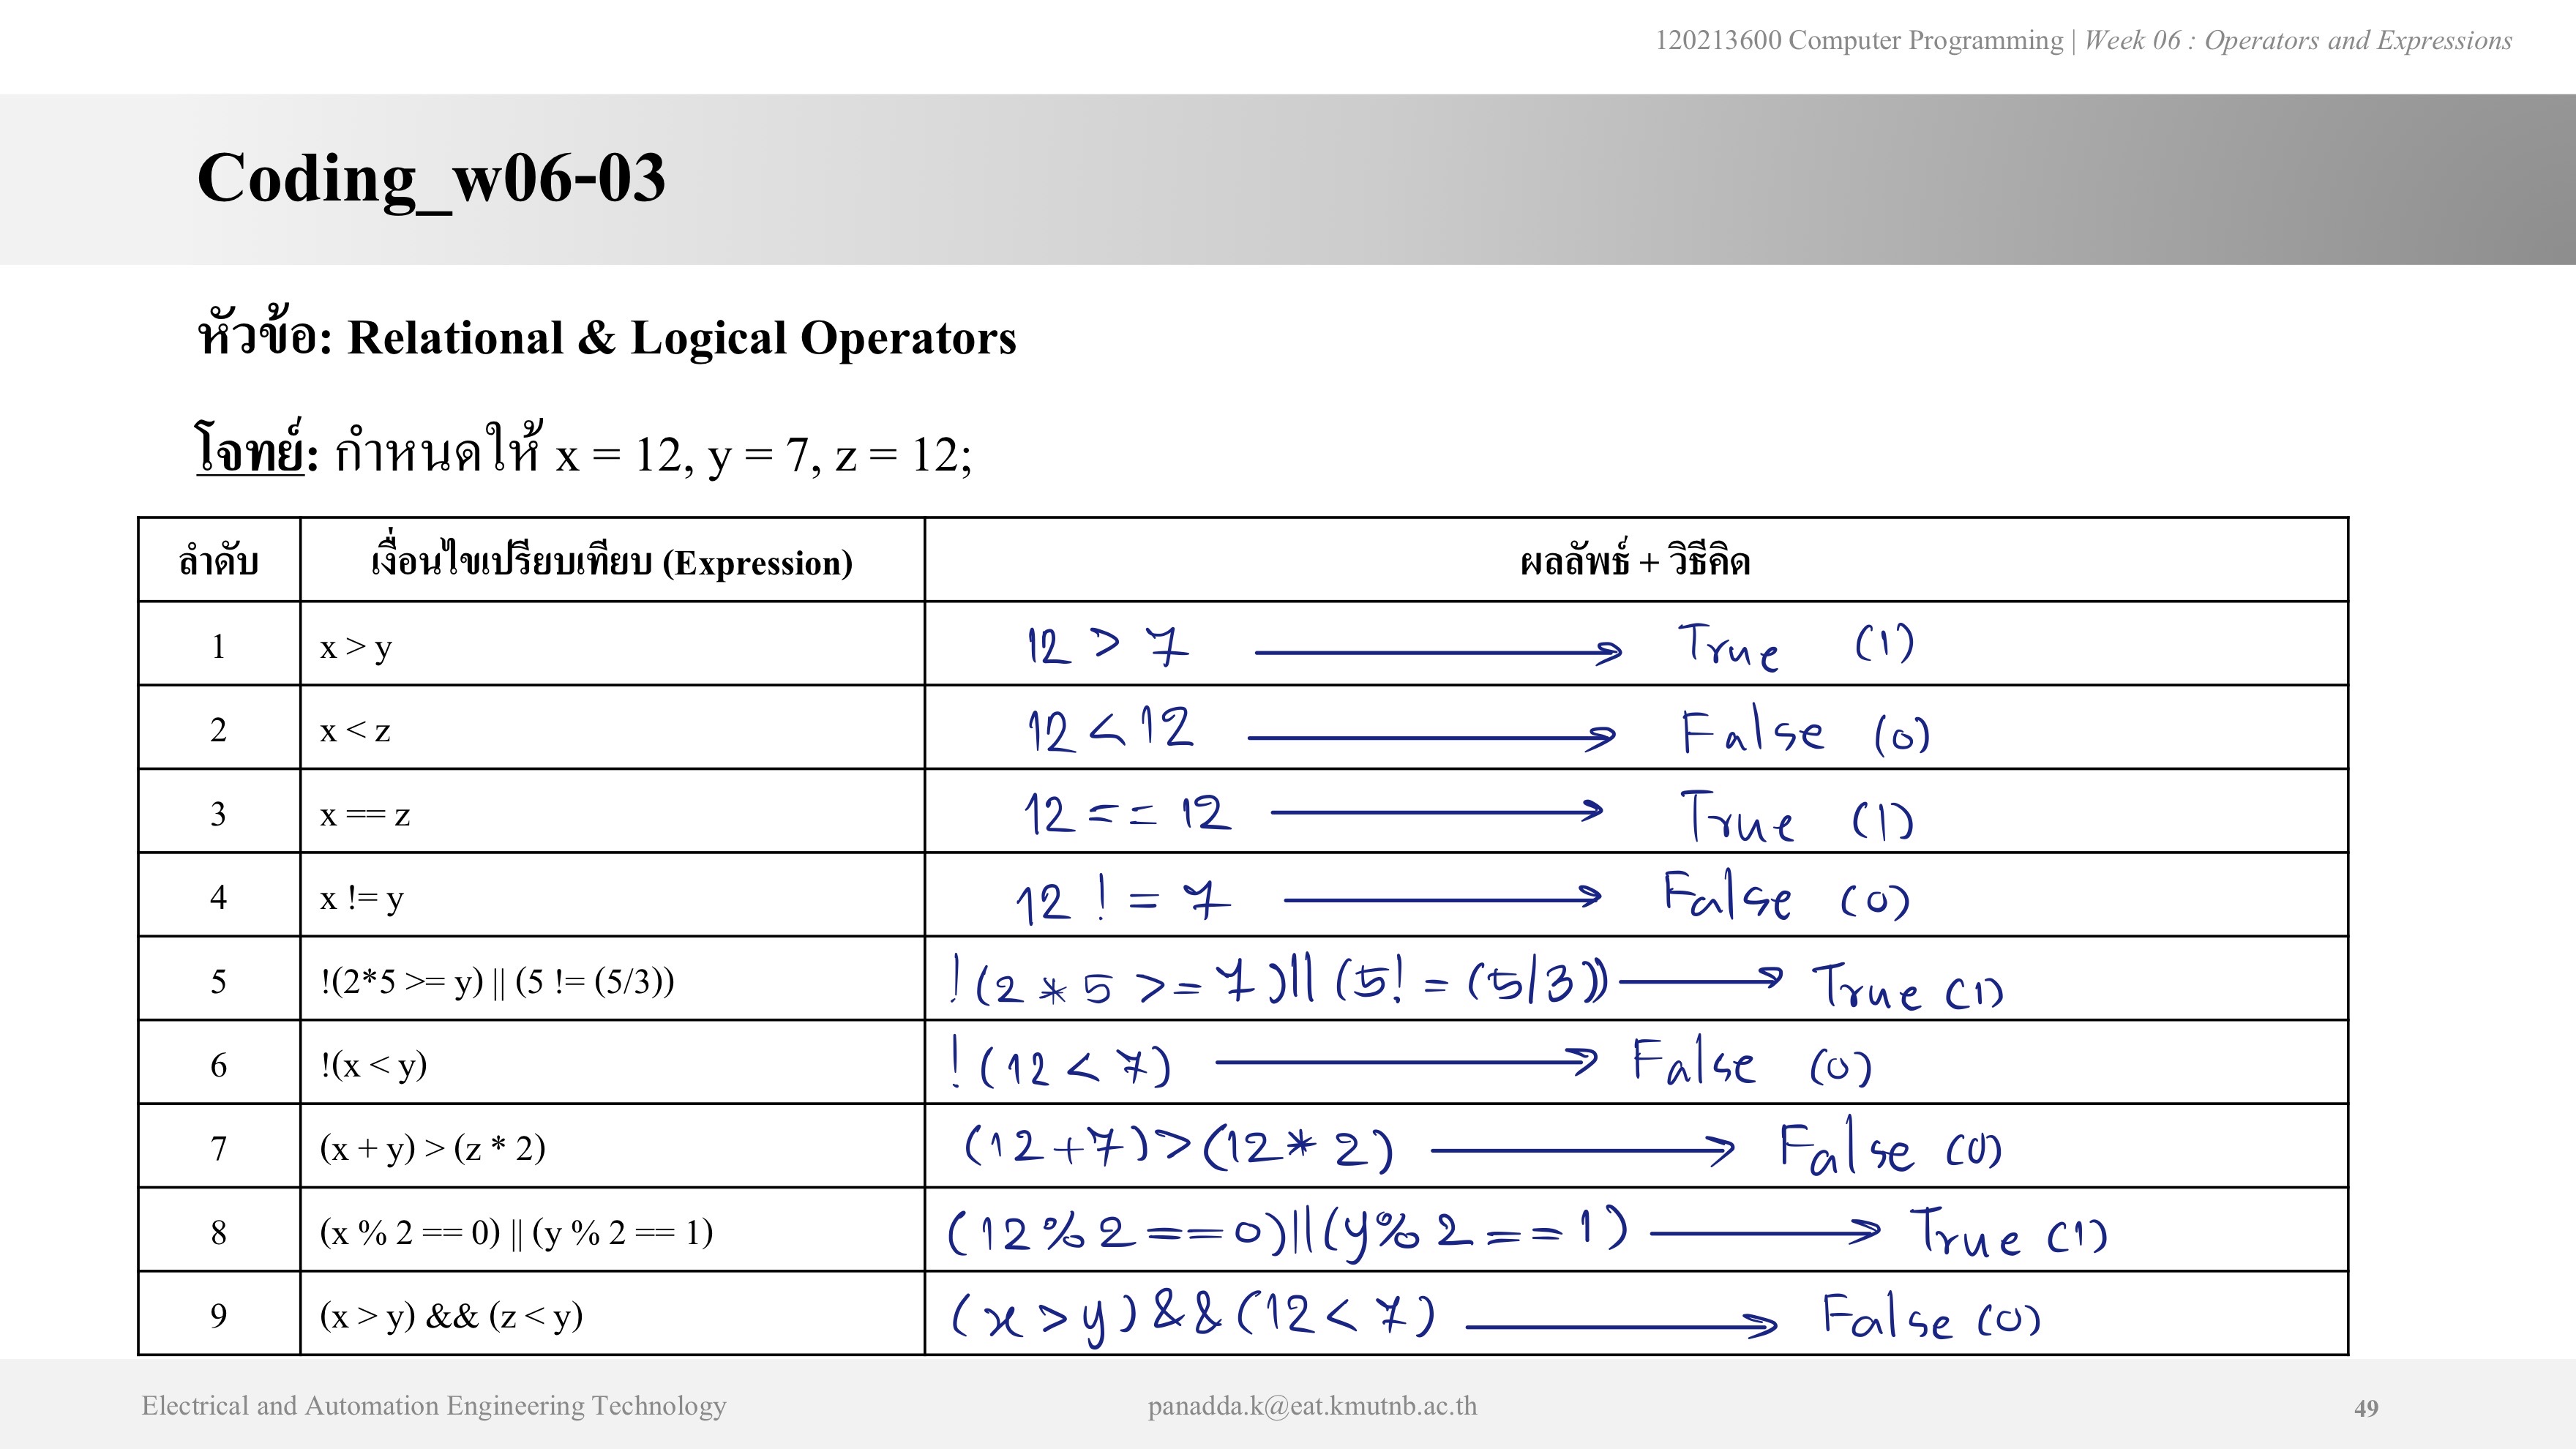 120213600 Computer Programming | Week 06 : Operators and Expressions
Coding_w06-03
หัวข้อ: Relational & Logical Operators
โจทย์: กำหนดให้ x = 12, y = 7, z = 12;
ลำดับ เงื่อนไขเปรียบเทียบ (Expression) ผลลัพธ์ + วิธีคิด
1 x > y 12 > 7 → True (1)
2 x < z 12 < 12 → False (0)
3 x == z 12 == 12 → True (1)
4 x != y 12 != 7 → False (0)
5 !(2*5 >= y) || (5 != (5/3)) !(2 * 5 >= 7) || (5! = (5/3)) → True (1)
6 !(x < y) !(12 < 7) → False (0)
7 (x + y) > (z * 2) (12+7) > (12 * 2) → False (0)
8 (x % 2 == 0) || (y % 2 == 1) (12 % 2 == 0) || (y % 2 == 1) → True (1)
9 (x > y) && (z < y) (x > y) && (12 < 7) → False (0)
Electrical and Automation Engineering Technology panadda.k@eat.kmutnb.ac.th 49